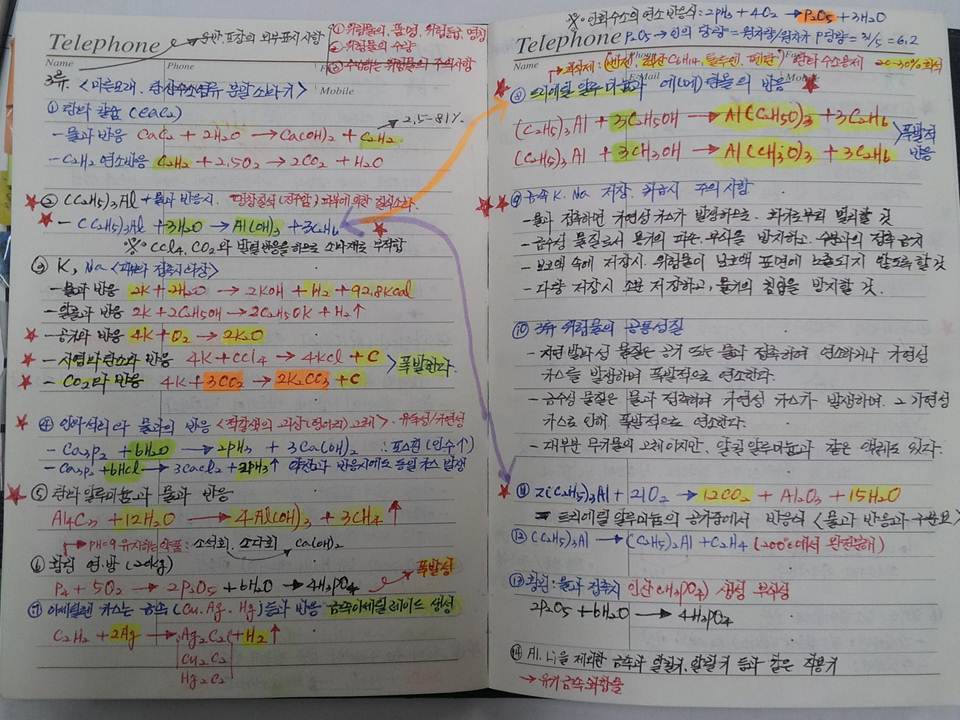 운반, 포장의 외부표시 사항
① 위험물의 품명, 위험등급, 명칭
② 위험물의 수량
③ 수납하는 위험물의 주의사항
Telephone
Name
Phone
Mobile
3류. <마른모래, 탄산수소염류 분말소화기>
① 탄화칼슘 (CaC2)
- 물과 반응 CaC2 + 2H2O → Ca(OH)2 + C2H2
2.5~81%
- C2H2 연소반응 C2H2 + 2.5O2 → 2CO2 + H2O
② (C2H5)3Al + 물과 반응시.
- (C2H5)3Al + 3H2O → Al(OH)3 + 3C2H6
※ CCl4, CO2와 발열반응을 하므로 소화재로 부적합
③ K, Na
- 물과 반응 2K + 2H2O → 2KOH + H2 + 92.8Kcal
- 알콜과 반응 2K + 2C2H5OH → 2C2H5OK + H2↑
- 공기와 반응 4K + O2 → 2K2O
- 사염화탄소와 반응 4K + CCl4 → 4KCl + C
- CO2와 반응 4K + 3CO2 → 2K2CO3 + C
폭발한다.
④ 인화석회와 물과의 반응 <적갈색의 괴상(덩어리) 고체> 유독성/가연성
- Ca3P2 + 6H2O → 2PH3 + 3Ca(OH)2
- Ca3P2 + 6HCl → 3CaCl2 + 2PH3↑
⑤ 탄화알루미늄과 물과 반응
Al4C3 + 12H2O → 4Al(OH)3 + 3CH4↑
PH=9 유지하는 약품: 소석회, 소다회 Ca(OH)2
⑥ 황린 연소반응 (20kg)
P4 + 5O2 → 2P2O5 + 6H2O → 4H3PO4
폭발성
⑦ 아세틸렌 가스는 금속 (Cu, Ag, Hg)등과 반응 금속아세틸레이드 생성
C2H2 + 2Ag → Ag2C2 + H2↑
Cu2C2
Hg2C2
※ 인화수소의 연소반응식: 2PH3 + 4O2 → P2O5 + 3H2O
Telephone
P2O5 → 인의 당량 = 원자량/원자가 P당량 = 31/5 = 6.2
Name
Mobile
희석제: (벤젠, 헥산 C6H14, 톨루엔, 펜탄) 탄화수소용제 20~30% 희석
⑧ 트리에틸 알루미늄과 에(메)탄올의 반응
(C2H5)3Al + 3C2H5OH → Al(C2H5O)3 + 3C2H6
(C2H5)3Al + 3CH3OH → Al(CH3O)3 + 3C2H6
폭발적 반응
⑨ 금속 K, Na 저장, 취급시 주의사항
- 물과 접촉하면 가연성 가스가 발생하므로, 화기로부터 멀리할 것
- 금수성 물질로서 용기의 파손, 부식을 방지하고, 수분과의 접촉 금지
- 보호액 속에 저장시, 위험물이 보호액 표면에 노출되지 않도록 할 것
- 다량 저장시 소분 저장하고, 물기의 침입을 방지할 것.
⑩ 3류 위험물의 공통성질
- 자연발화성 물질은 공기 또는 물과 접촉하여 연소하거나 가연성
가스를 발생하며 폭발적으로 연소한다.
- 금수성 물질은 물과 접촉하여 가연성 가스가 발생하며, 그 가연성
가스로 인해 폭발적으로 연소한다.
- 대부분 무기물의 고체이지만, 알킬 알루미늄과 같은 액체도 있다.
⑪ 2(C2H5)3Al + 21O2 → 12CO2 + Al2O3 + 15H2O
트리에틸 알루미늄의 공기중에서 반응식 <물과 반응과 구분요>
⑫ (C2H5)3Al → (C2H5)2Al + C2H4 (200℃에서 완전분해)
⑬ 황린: 물과 접촉시 인산(H3PO4) 생성 부식성
2P2O5 + 6H2O → 4H3PO4
⑭ Al, Li을 제외한 금속과 알킬기, 알릴기 등과 같은 작용기
→ 유기금속화합물